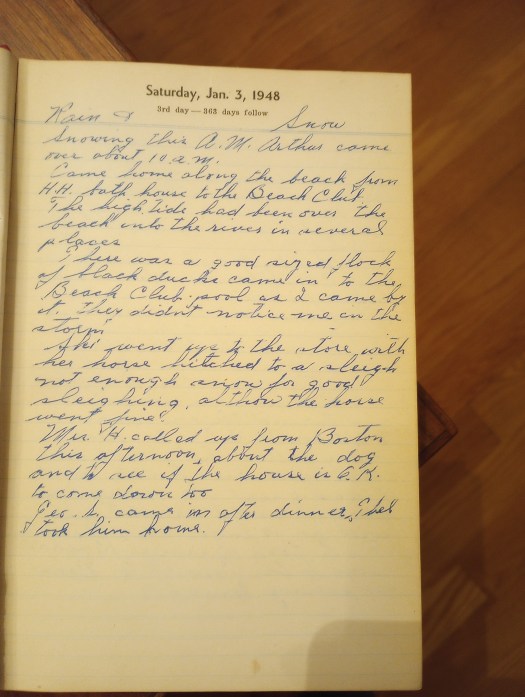 Saturday, Jan. 3, 1948
3rd day — 363 days follow
Rain & Snow
Snowing this A.M. Arthur came
over about 10 a.m.
Came home along the beach from
H.H. bath house to the Beach Club.
The high tide had been over the
beach into the river in several
places
There was a good sized flock
of black ducks came in to the
Beach Club pool as I came by
it. They didn't notice me in the
storm
went up to the store with
her horse hitched to a sleigh
not enough snow for good
sleighing, althow the horse
went fine.
Mrs. H. called up from Boston
this afternoon, about the dog
and to see if the house is O.K.
to come down too
Geo. S. came in after dinner,
took him home.